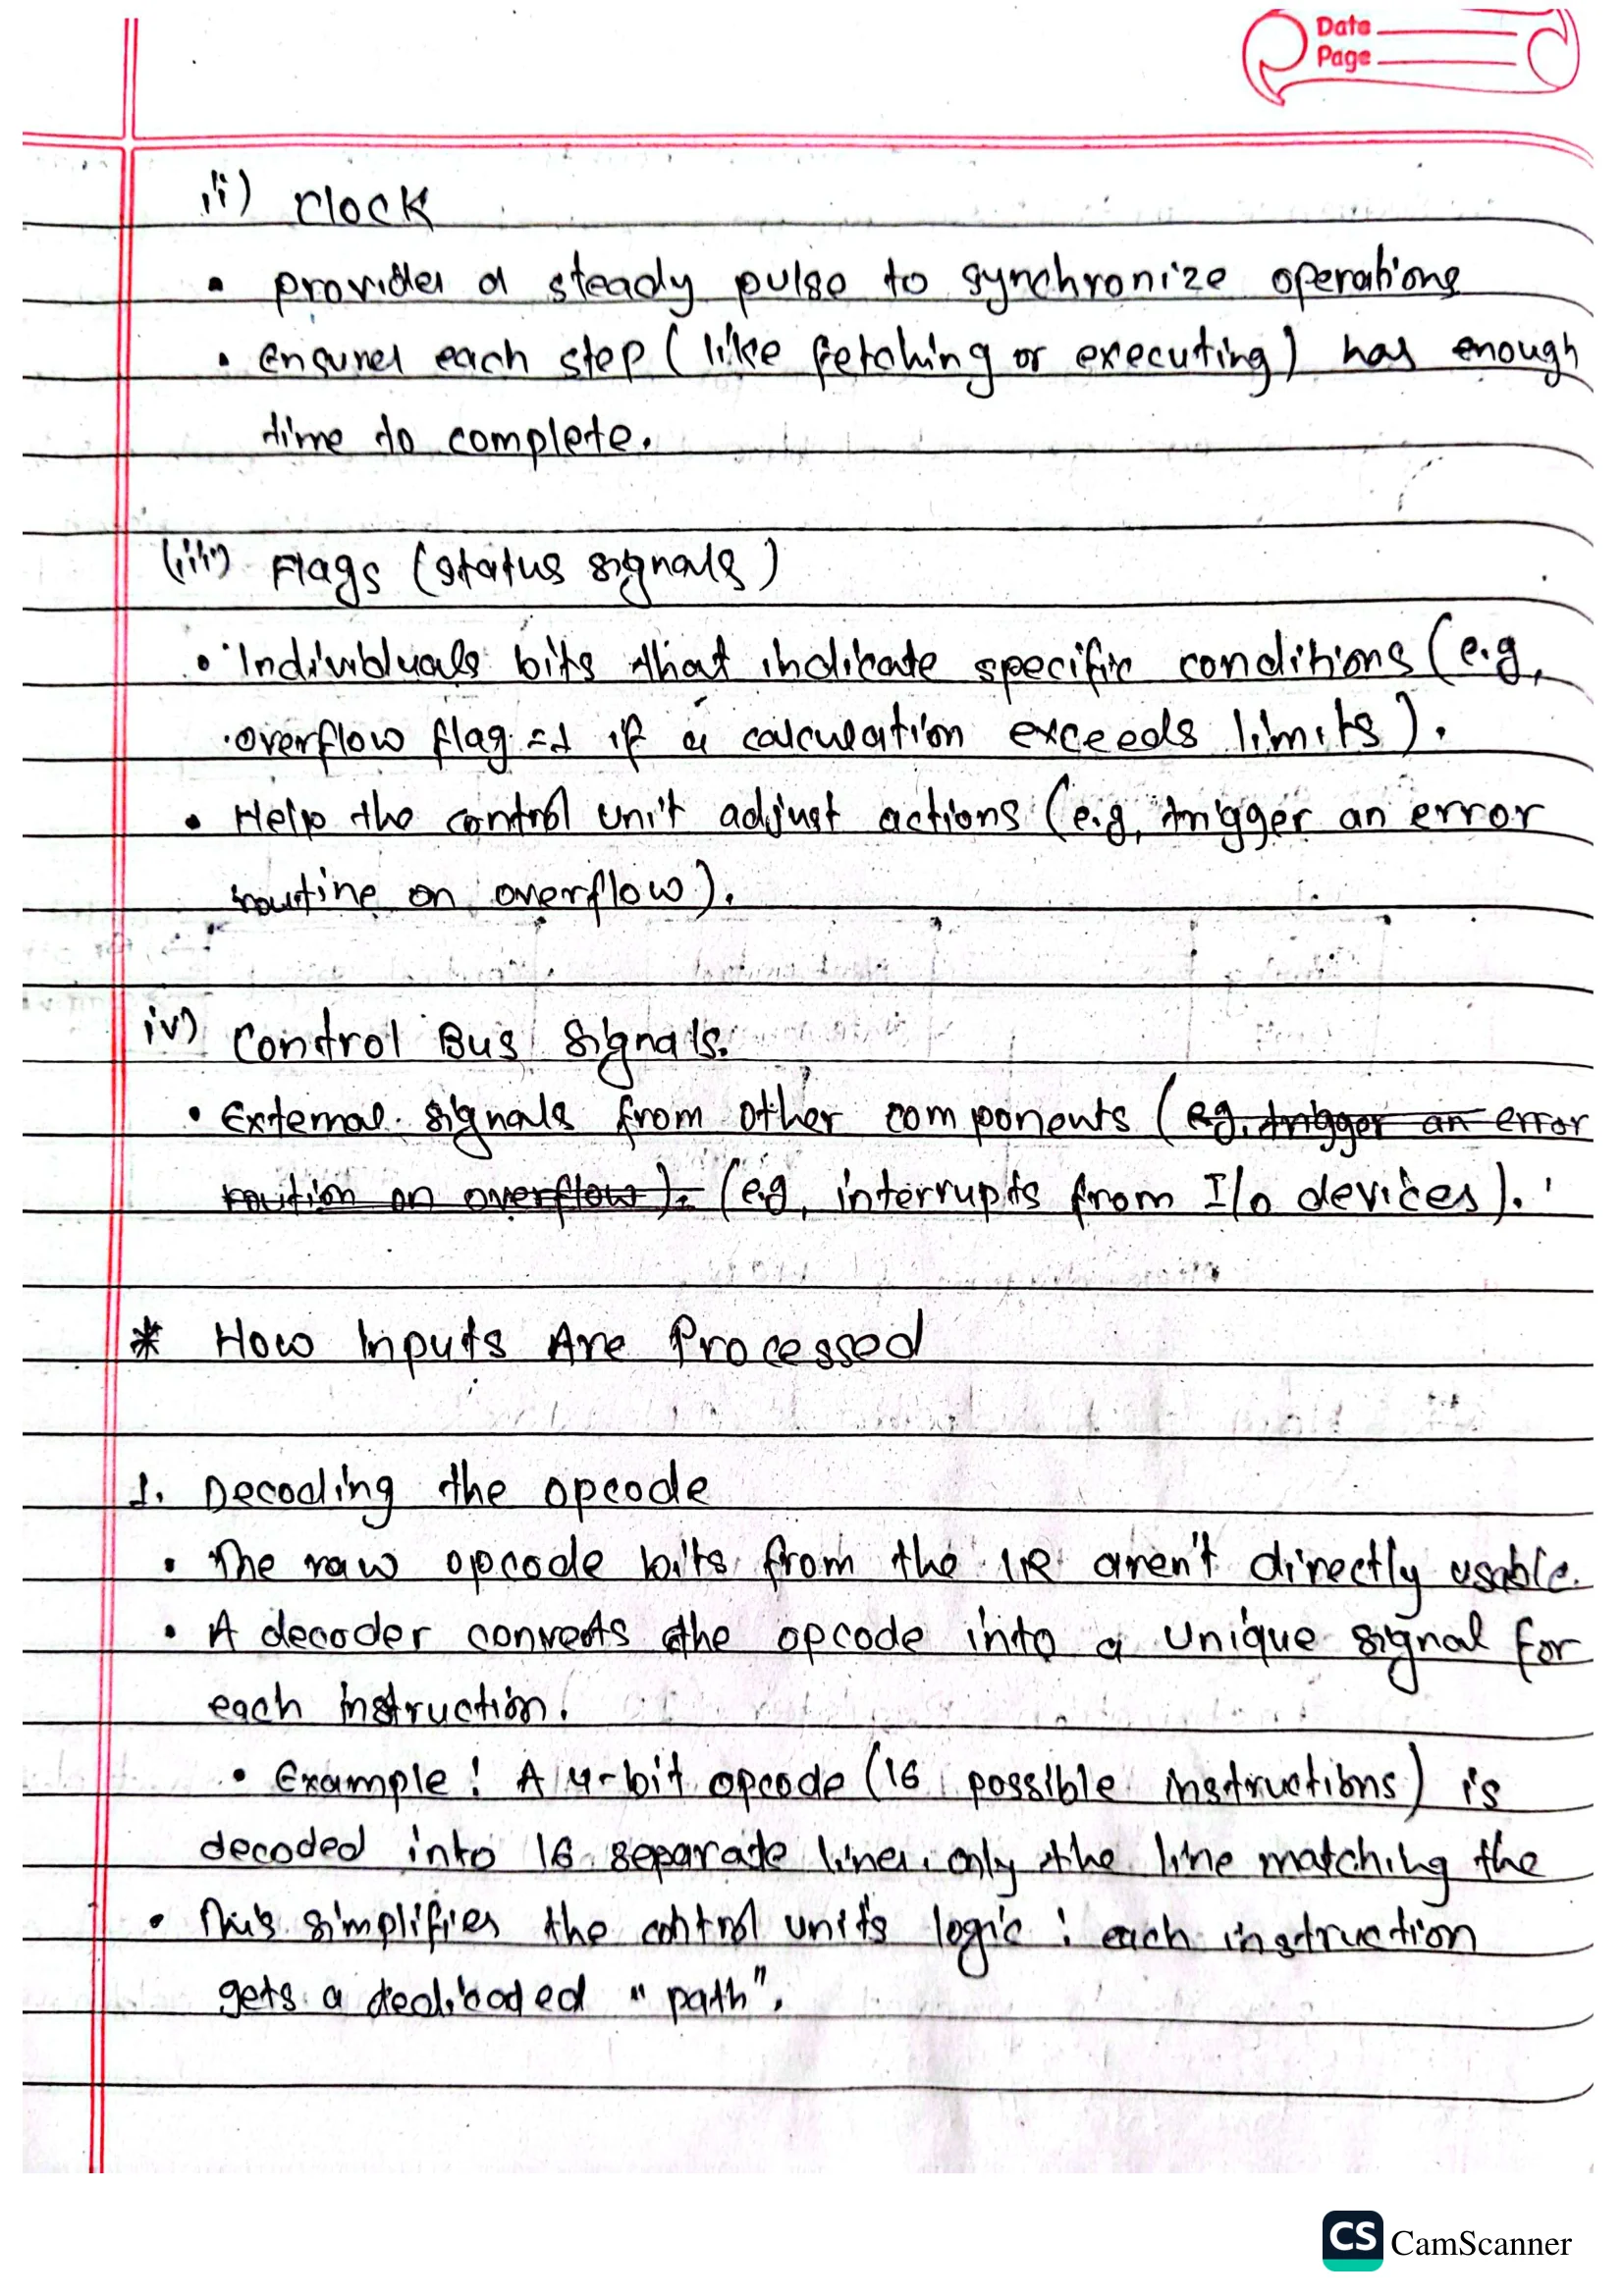 Date
Page
ii) Clock
• provides a steady pulse to synchronize operations
• Ensures each step (like fetching or executing) has enough
time to complete.
(iii) Flags (status signals)
• Individuals bits that indicate specific conditions (e.g,
overflow flag =1 if a calculation exceeds limits).
• Help the control unit adjust actions (e.g, trigger an error
routine on overflow).
iv) Control Bus Signals.
• External signals from other components (e.g. trigger an error
roution on overflow). (e.g, interrupts from I/O devices).
* How Inputs Are Processed
1. Decoding the opcode
• The raw opcode bits from the IR aren't directly usable.
• A decoder converts the opcode into a unique signal for
each instruction.
• Example: A 4-bit opcode (16 possible instructions) is
decoded into 16 separate lines. only the line matching the
• This simplifies the control unit's logic: each instruction
gets a dedicated "path".
CS CamScanner